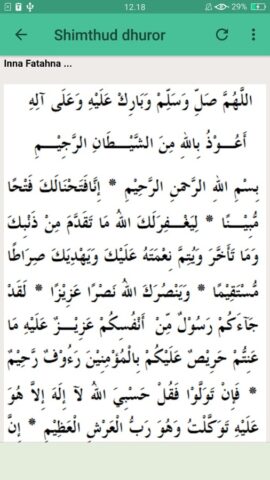 12.18
29%
Shimthud dhuror
Inna Fatahna ...
اللَّهُمَّ صَلِّ وَسَلِّمْ وَبَارِكْ عَلَيْهِ وَعَلَى آلِهِ
أَعُـــوْذُ بِاللهِ مِنَ الشَّيْـــطَانِ الرَّجِيْــــمِ
بِسْمِ اللهِ الرَّحْمنِ الرَّحِيْمِ * إِنَّافَتَحْنَالَكَ فَتْحًا
مُبِيْـــنًا * لِيَغْــفِرَلَكَ اللهُ مَا تَقَدَّمَ مِنْ ذَنْبِكَ
وَمَا تَأَخَّرَ وَيُتِمَّ نِعْمَتَهُ عَلَيْكَ وَيَهْدِيَكَ صِرَاطًا
مُسْتَقِيْمًا * وَيَنْصُرَكَ اللهُ نَصْرًا عَزِيْزًا * لَقَدْ
جَاءَكُمْ رَسُوْلٌ مِّنْ أَنْفُسِكُمْ عَزِيْـــزٌ عَلَيْهِ مَا
عَنِتُّمْ حَرِيْصٌ عَلَيْكُمْ بِالْمُؤْمِنِيْنَ رَءُوْفٌ رَّحِيْمٌ
* فَإِنْ تَوَلَّوْا فَقُلْ حَسْبِيَ اللهُ لَآ إِلَهَ إِلاَّ هُوَ
عَلَيْهِ تَوَكَّلْتُ وَهُوَ رَبُّ الْعَرْشِ الْعَظِيْمِ * إِنَّ